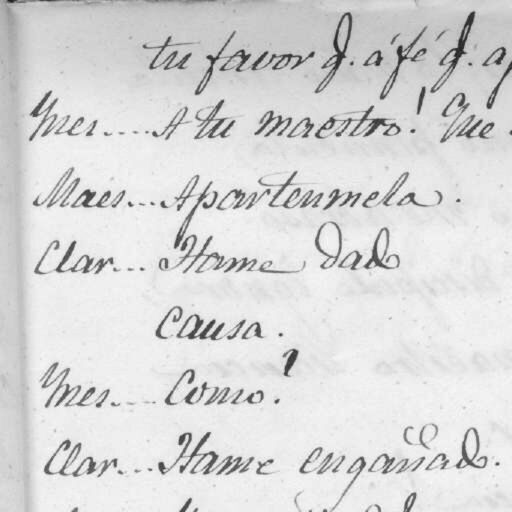 tu favor q. á fé q.
Ynes.... A tu maestro! Que
Maes... Apartenmela.
Clar... Hame dado
causa.
Ynes.... Como?
Clar... Hame engañado.